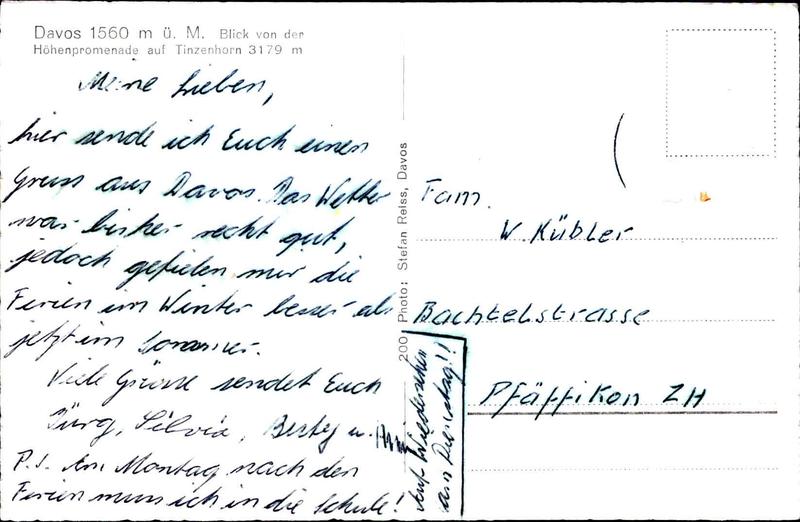 Davos 1560 m ü. M. Blick von der
Höhenpromenade auf Tinzenhorn 3179 m
Meine Lieben,
hier sende ich Euch einen
Gruss aus Davos. Das Wetter
war bisher recht gut,
jedoch gefielen mir die
Ferien im Winter besser als
jetzt im Sommer.
Viele Grüsse sendet Euch
Jürg, Silvia, u.
P.S. Am Montag nach den
Ferien muss ich in die Schule!
Auf Wiedersehen
am Dienstag!!
200 Photo: Stefan Reiss, Davos
Fam.
W. Kübler
Bachtelstrasse
Pfäffikon ZH